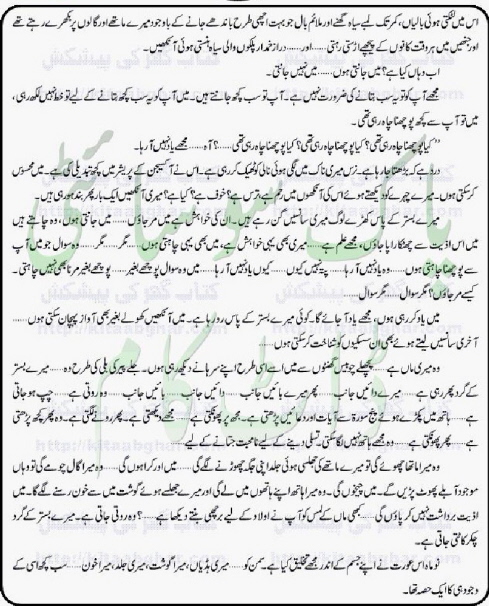 اس میں لٹکتی ہوئی بالیاں، کمر تک لمبے سیاہ گھنے اور ملائم بال جو بہت اچھی طرح باندھے جانے کے باوجود میرے ماتھے اور گالوں پر بکھرے رہتے تھے
اور جنھیں میں ہر وقت کانوں کے پیچھے اڑستی رہتی ...... اور ...... دراز خمدار پلکوں والی سیاہ ہنستی ہوئی آنکھیں۔
اب وہاں کیا ہے؟ میں جانتی ہوں ...... میں نہیں جانتی۔
مجھے آپ کو تو یہ سب بتانے کی ضرورت نہیں ہے۔ آپ تو سب کچھ جانتے ہیں۔ میں آپ کو یہ سب کچھ بتانے کے لیے تو خط نہیں لکھ رہی،
میں تو آپ سے کچھ پوچھنا چاہ رہی تھی۔
”کیا پوچھنا چاہ رہی تھی؟ کیا پوچھنا چاہ رہی تھی؟ کیا پوچھنا چاہ رہی تھی ......؟ آہ ...... مجھے یاد نہیں آ رہا۔
درد ہے کہ بڑھتا جا رہا ہے۔ نرس میری ناک میں لگی ہوئی نالی کو ٹھیک کر رہی ہے۔ اس نے آکسیجن کے پریشر میں کچھ تبدیلی کی ہے۔ میں محسوس
کر سکتی ہوں۔ میرے چہرے کو دیکھتے ہوئے اس کی آنکھوں میں رحم ہے، ترس ہے؟ خوف ہے؟ کیا ہے؟ میری آنکھیں ایک بار پھر بند ہو رہی ہیں۔
میرے بستر کے پاس کھڑے لوگ میری سانسیں گن رہے ہیں۔ ان کی خواہش ہے میں مر جاؤں ...... میں جانتی ہوں، وہ چاہتے ہیں
میں اس اذیت سے چھٹکارا پا جاؤں، مجھے علم ہے ...... میری بھی یہی خواہش ہے، میں بھی یہی چاہتی ہوں ...... مگر ...... مگر ...... وہ سوال جو میں آپ
سے پوچھنا چاہتی ہوں ...... وہ یاد نہیں آ رہا ...... پتہ نہیں کیوں ...... کیوں یاد نہیں آ رہا ...... میں وہ سوال پوچھے بغیر ...... پوچھے بغیر مرنا بھی نہیں چاہتی۔
کیسے مر جاؤں؟ مگر سوال ...... مگر سوال ......
میں یاد کر رہی ہوں۔ مجھے یاد آ جائے گا۔ کوئی میرے بستر کے پاس رو رہا ہے ...... میں آنکھیں کھولے بغیر بھی آواز پہچان سکتی ہوں ......
آخری سانسیں لیتے ہوئے بھی ان سسکیوں کو شناخت کر سکتی ہوں۔
وہ میری ماں ہے ...... پچھلے چوبیس گھنٹوں میں سے میں اسے اسی طرح اپنے سرہانے دیکھ رہی ہوں۔ جلے پیر کی بلی کی طرح وہ ...... میرے بستر
کے گرد پھر رہی ہے ...... میرے دائیں جانب ...... پھر میرے بائیں جانب ...... دائیں جانب ...... بائیں جانب ...... وہ روتی ہے ...... چپ ہو جاتی
ہے ...... ہاتھ میں پکڑے ہوئے پنج سورۃ سے آیات اور دعائیں پڑھتی ہے۔ مجھ پر پھونکتی ہے ...... مجھے دیکھتی ہے، پھر رونے لگتی ہے۔ وہ پھر کچھ پڑھتی
ہے ...... پھر پھونکتی ہے ...... وہ مجھے ہاتھ نہیں لگا سکتی۔ تسلی دینے کے لیے نہ محبت جتانے کے لیے۔
وہ میرا ماتھا چھوئے گی تو میرے ماتھے کی جھلسی ہوئی جلد اپنی جگہ چھوڑنے لگے گی ...... میں اور کراہوں گی ...... وہ میرا گال چومے گی تو وہاں
موجود آبلے پھوٹ پڑیں گے۔ میں چیخوں گی۔ وہ میرا ہاتھ اپنے ہاتھوں میں لے گی اور میرے جھلسے ہوئے گوشت میں سے خون رسنے لگے گا۔ میں
اذیت برداشت نہیں کر پاؤں گی ...... کبھی ماں کے لمس کو آپ نے اولاد کے لیے برچھی بنتے دیکھا ہے ......؟ وہ روتی جاتی ہے۔ میرے بستر کے گرد
چکر کاٹتی جاتی ہے۔
نو ماہ اس عورت نے اپنے جسم کے اندر مجھے تخلیق کیا ہے۔ سمن کو ...... میری ہڈیاں، میرا گوشت، میری جلد، میرا خون ...... سب کچھ اسی کے
وجود ہی کا ایک حصہ تھا۔
پاک سوسائٹی
ڈاٹ کام
کتاب گھر کی پیشکش
http://kitaabghar.com